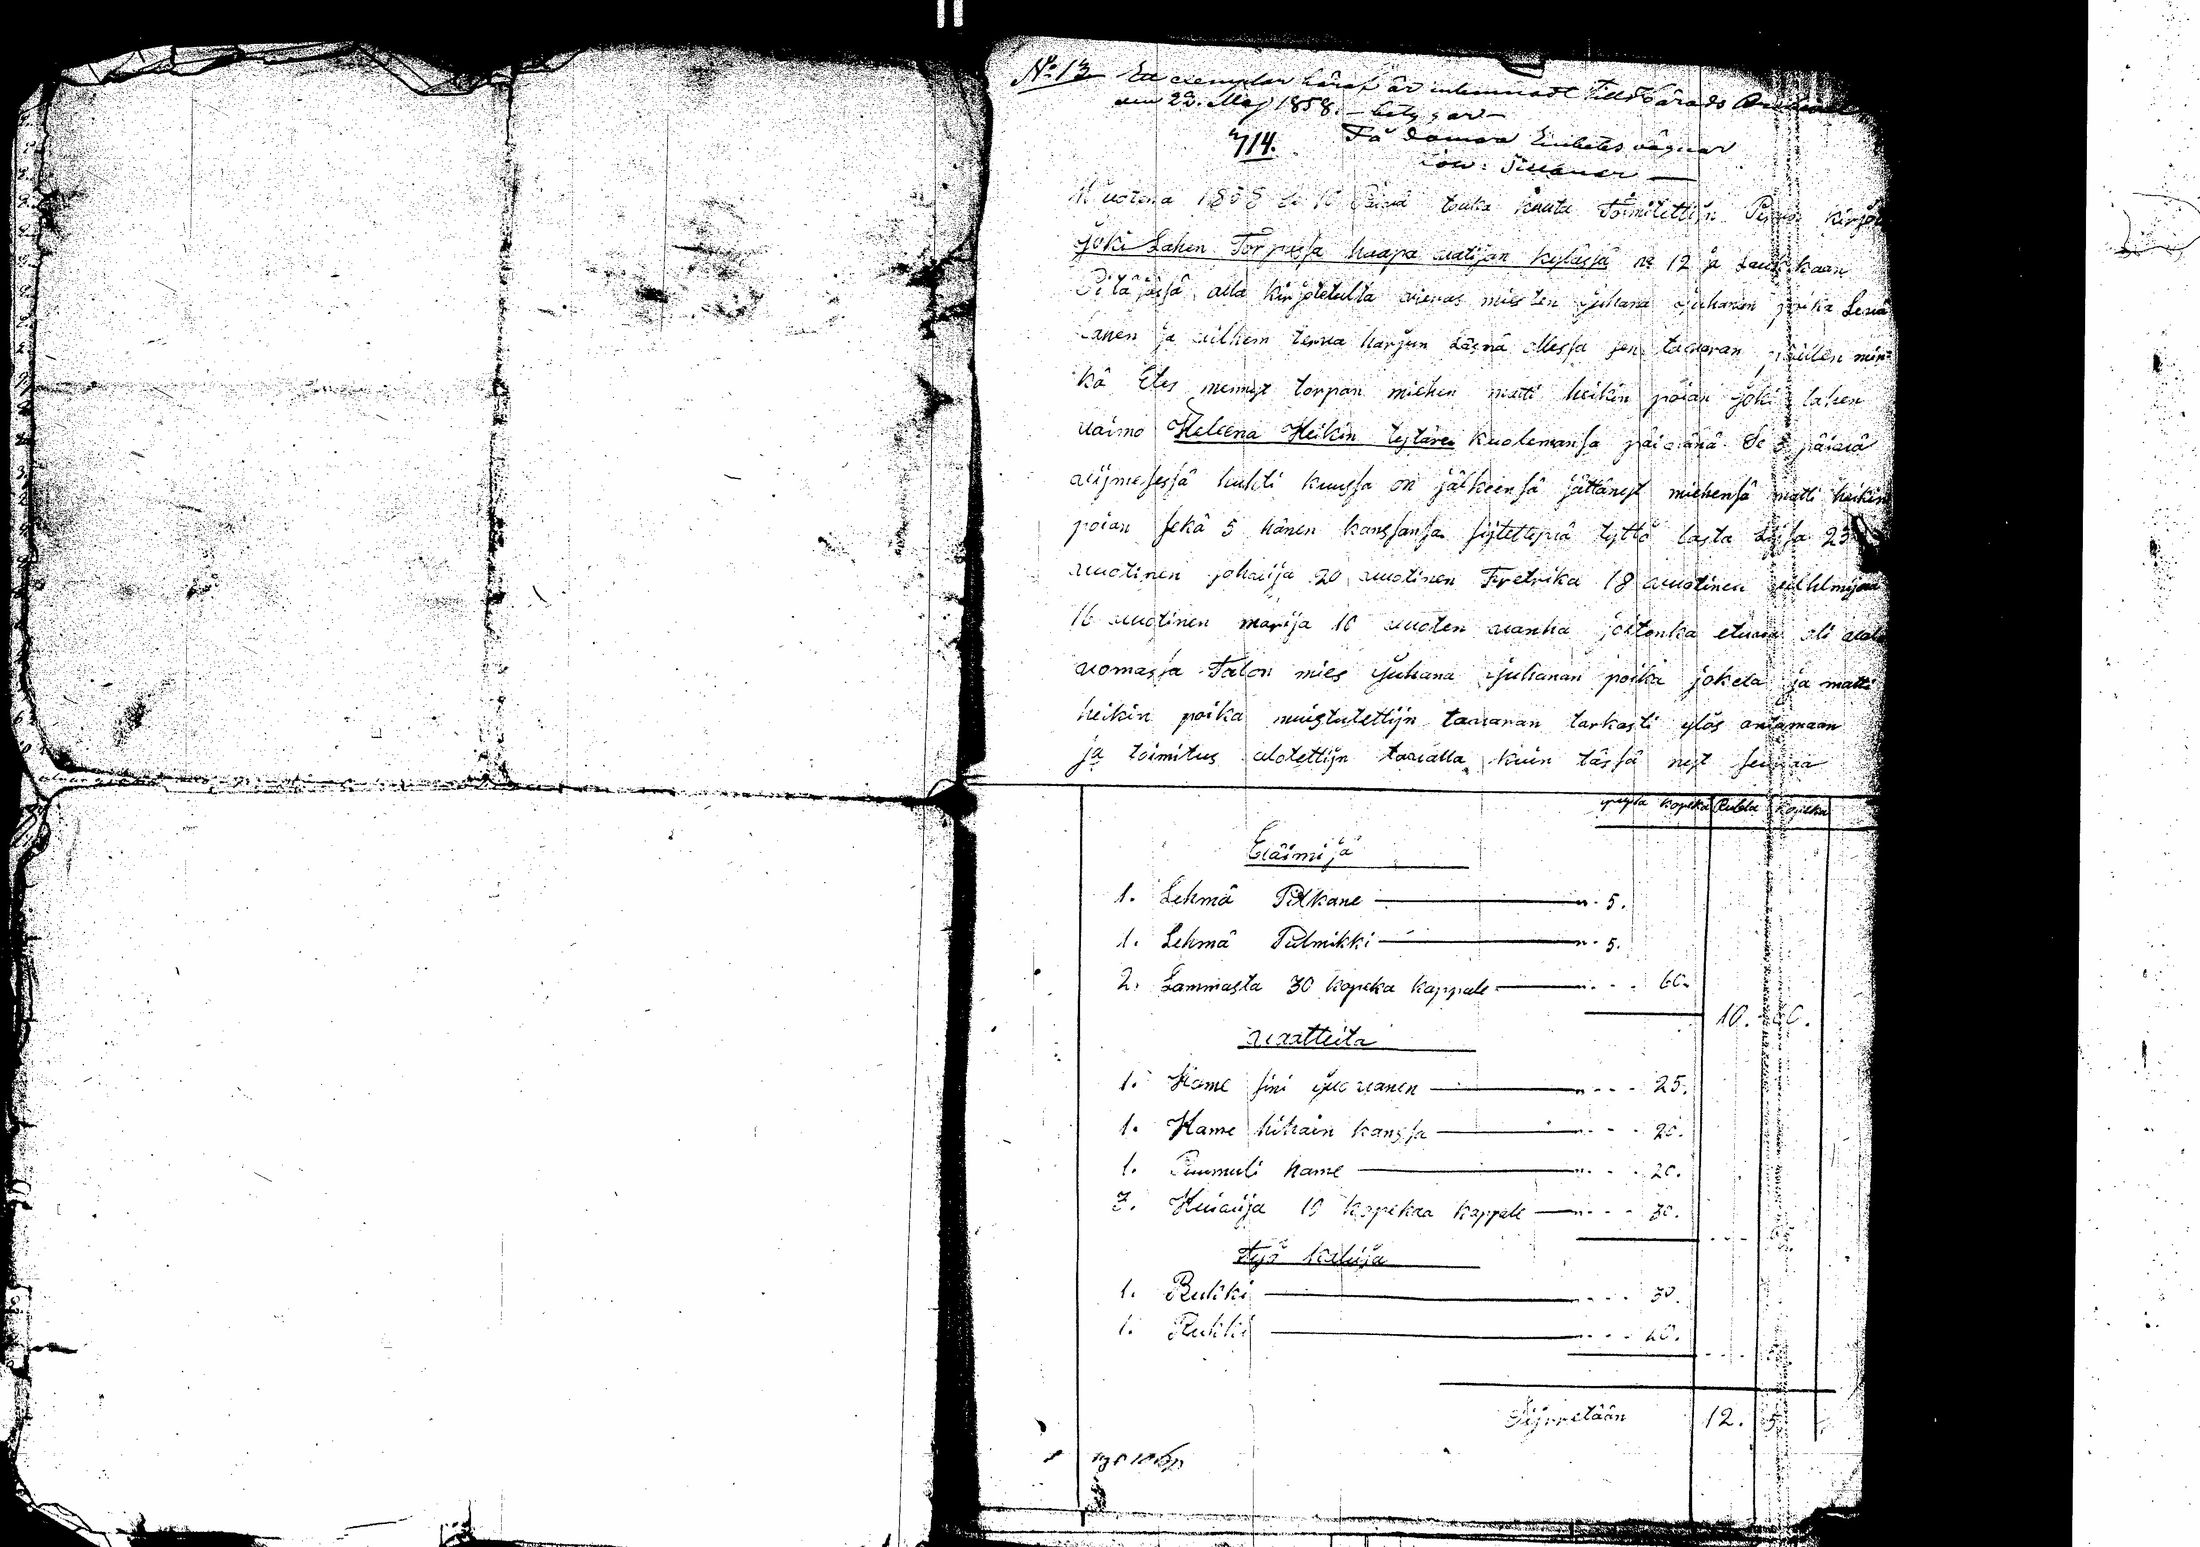 No 13 Ett exemplar häraf är inlemnadt till Härads
den 23. Maj 1858. betygar
714. På Domare Embetets vägnar
Wuotena 1858 se 10 Päiwä touko kuuta Toimitettijn Perun kirjoi
joki Lahen Torpassa haapa watijan kylässä No 12 ja Laukkaan
Pitäjässä, alla kirjotetulta wieras miesten juhana juhanan poika Lewä
lanen ja wilhem terwa harjun Läsnä ollessa sen tawaran päälen min
kä Etes mennyt torpan miehen matti heikin poian joki lahen
waimo Heleena Heikin tytären kuolemansa päiwänä Se 3 päiwä
wijmesessä huhti kuussa on jälkeensä jättänyt miehensä matti heikin
poian sekä 5 hänen kanssansa sijtettyviä tyttö lasta 23
wuotinen johanja 20 wuotinen Fretrika 18 wuotinen wilhelmijna
16 wuotinen marija 10 wuoten wanha joittenka etuwa oli
womassa Talon mies juhana juhanan poika jokela ja matti
heikin poika muistutettijn tawaran tarkasti ylös antamaan
ja toimitus alotettijn tawalla kuin tässä nyt seuraa
rupla kopeka Rubla kopeka
Eläimijä
1. Lehmä Pitkane 5.
1. Lehmä Pulmikki 5.
2. Lammasta 30 kopeka kappale 60.
10. 60.
waatteita
1. Hame sini juowanen 25.
1. Hame hihain kanssa 20.
1. Puumuli hame 20.
3. Huiwija 10 kopekaa kappale 30.
työ kaluja
1. Rukki 30.
1. Rukki 20.
Sijrretään 12. 5